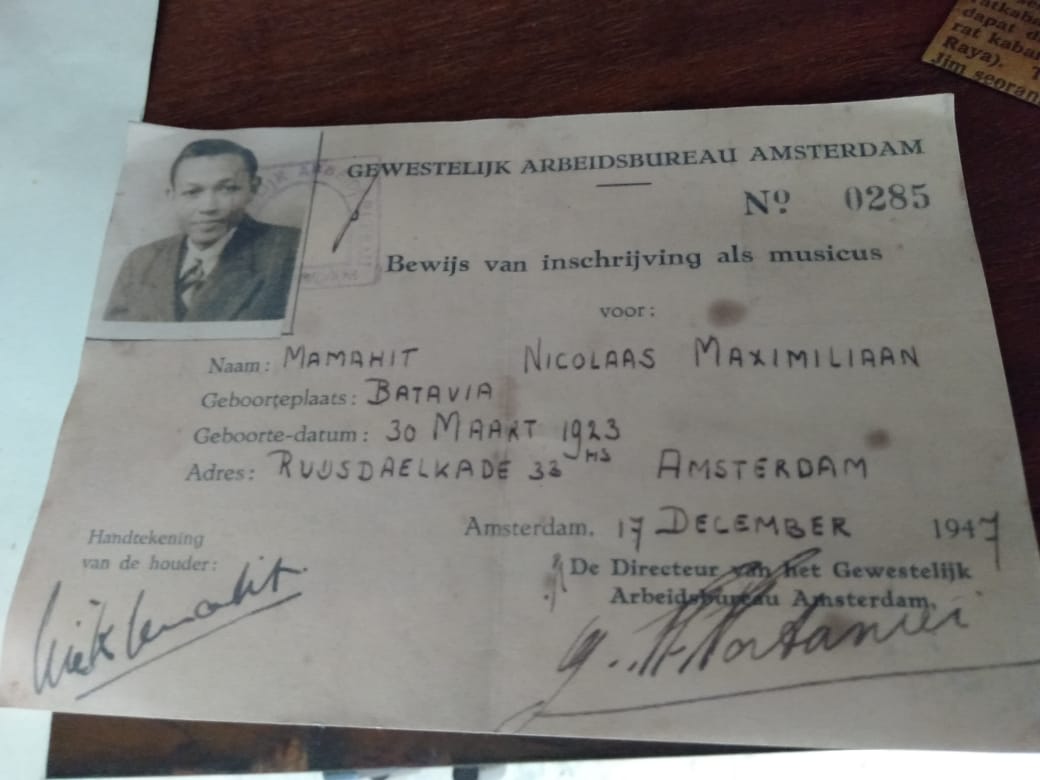 GEWESTELIJK ARBEIDSBUREAU AMSTERDAM
Nº 0285
Bewijs van inschrijving als musicus
voor:
Naam: MAMAHIT NICOLAAS MAXIMILIAAN
Geboorteplaats: BATAVIA
Geboorte-datum: 30 MAART 1923
Adres: RUIJSDAELKADE 33 HS AMSTERDAM
Amsterdam, 17 DECEMBER 1947
Handtekening
van de houder:
De Directeur van het Gewestelijk
Arbeidsbureau Amsterdam,
dapat
rat kabar
Raya).
Jim seoran